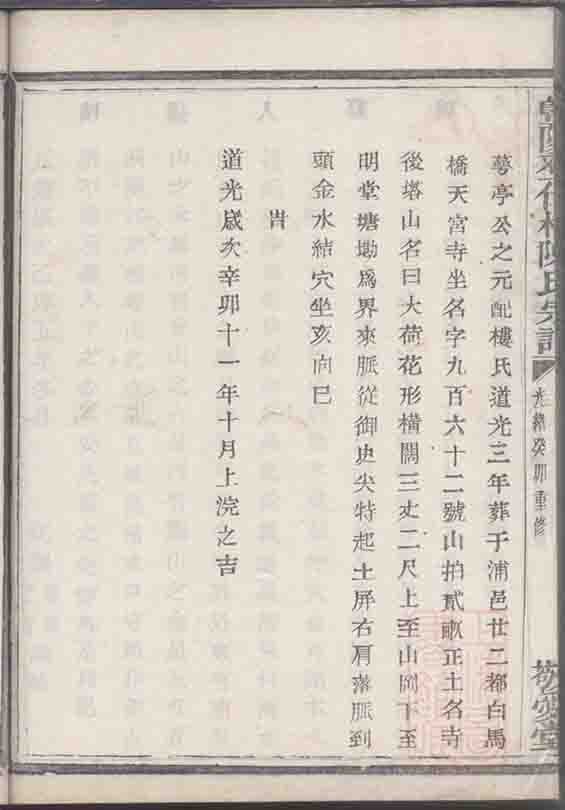 蕚亭公之元配樓氏道光三年葬于浦邑廿二都白馬
橋天宮寺坐名字九百六十二號山拍貳畝正土名寺
後塔山名曰大荷花形橫闊三丈二尺上至山岡下至
明堂塘墈爲界來脈從御史尖特起土屏右肩落脈到
頭金水結穴坐亥向巳
旹
道光歲次辛卯十一年十月上浣之吉
陳氏宗譜
光緒癸卯重修